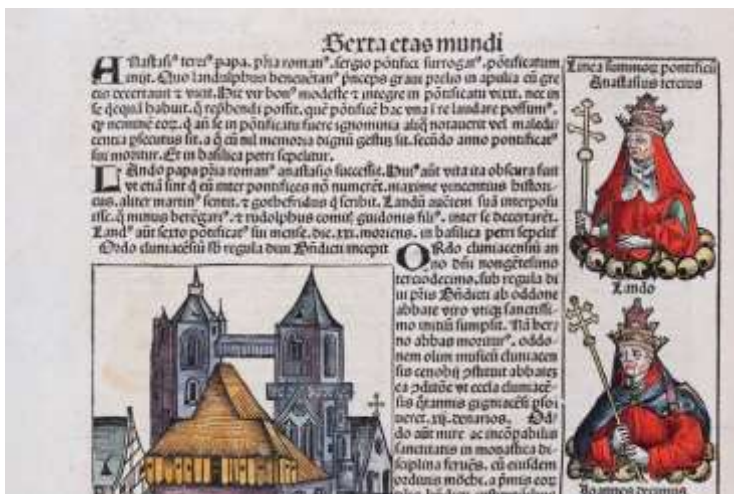 Sexta etas mundi
Anastasiꝰ terciꝰ papa. pn̄a romanꝰ. sergio pōtifice surrogatꝰ. pōtificatum
iniit. Quo landulphus beneuētanꝰ p̄nceps graui prelio in apulia cū gre
cis decertauit ⁊ vicit. Hic vir bonꝰ modeste ⁊ integre in pōtificatu vixit. nec in
se q̄cq̄ habuit. q̄ rephendi possit. quē pōtificē hac vna i re laudare possumꝰ.
qꝫ neminē eoꝝ. q̄ an̄ se in pōtificatu fuere ignominia aliq̄ notauerit vel maledi
centia psecutus sit. a q̄ cū nil memoria dignū gestū sit. secūdo anno pontificatꝰ
sui moritur. Et in basilica petri sepelitur.
Lando papa pn̄a romanꝰ anastasio successit. Huiꝰ aūt vita ita obscura fuit
vt etiā sint q̄ eū inter pontifices nō numerēt. maxime vincentius histori-
cus. aliter martinꝰ sentit. ⁊ gothefridus q̄ scribit. Landū auctem suā interposu
isse. q̄ minus berēgariꝰ. ⁊ rudolphus comitꝭ guidonis filꝰ. inter se decertarēt.
Landꝰ aūt sexto pōtificatꝰ sui mense. die. xxi. moriens. in basilica petri sepelit̄
Ordo cluniacēsiū sb regula diui Bn̄dicti incepit
Ordo cluniacensiū an
no dn̄i nongētesimo
terciodecimo. sub regula di
ui p̄ris Bn̄dicti ab oddone
abbate viro vtiqꝫ sanctissi-
mo initiū sumpsit. Nā ber/
no abbas moriturꝰ. oddo-
nem olim musicū cluniacen
sis cenobij p̄stituit abbatē
ea ꝯditōe vt eccl̄a cluniacē-
sis q̄tannis gigniacēsi psol
ueret. xij. denarios. Od/
do aūt mire ac incōpabilis
sanctitatis in monastica di-
sciplina feruēs. cū eiusdem
ordinis mōchi. a p̄mis eoꝝ
Linea summoꝝ pontificū
Anastasius tercius
Lando
Joannes decimus